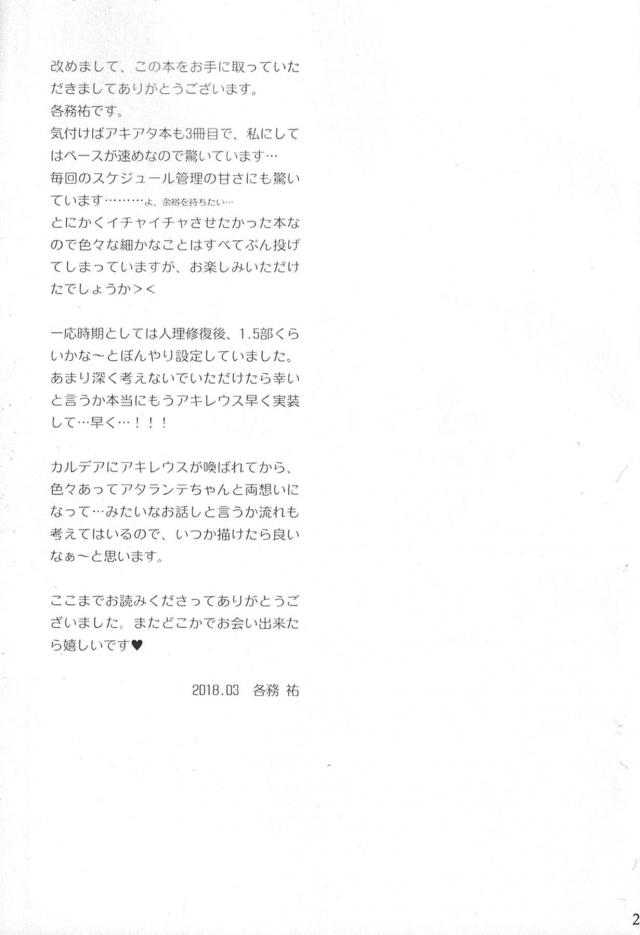 改めまして、この本をお手に取っていた
だきましてありがとうございます。
各務祐です。
気付けばアキアタ本も3冊目で、私にして
はペースが速めなので驚いています…
毎回のスケジュール管理の甘さにも驚い
ています………よ、余裕を持ちたい…
とにかくイチャイチャさせたかった本な
ので色々な細かなことはすべてぶん投げ
てしまっていますが、お楽しみいただけ
たでしょうか＞＜
一応時期としては人理修復後、1.5部くら
いかな～とぼんやり設定していました。
あまり深く考えないでいただけたら幸い
と言うか本当にもうアキレウス早く実装
して…早く…！！！
カルデアにアキレウスが喚ばれてから、
色々あってアタランテちゃんと両想いに
なって…みたいなお話しと言うか流れも
考えてはいるので、いつか描けたら良い
なぁ～と思います。
ここまでお読みくださってありがとうご
ざいました。またどこかでお会い出来た
ら嬉しいです♥
2018.03　各務 祐
2